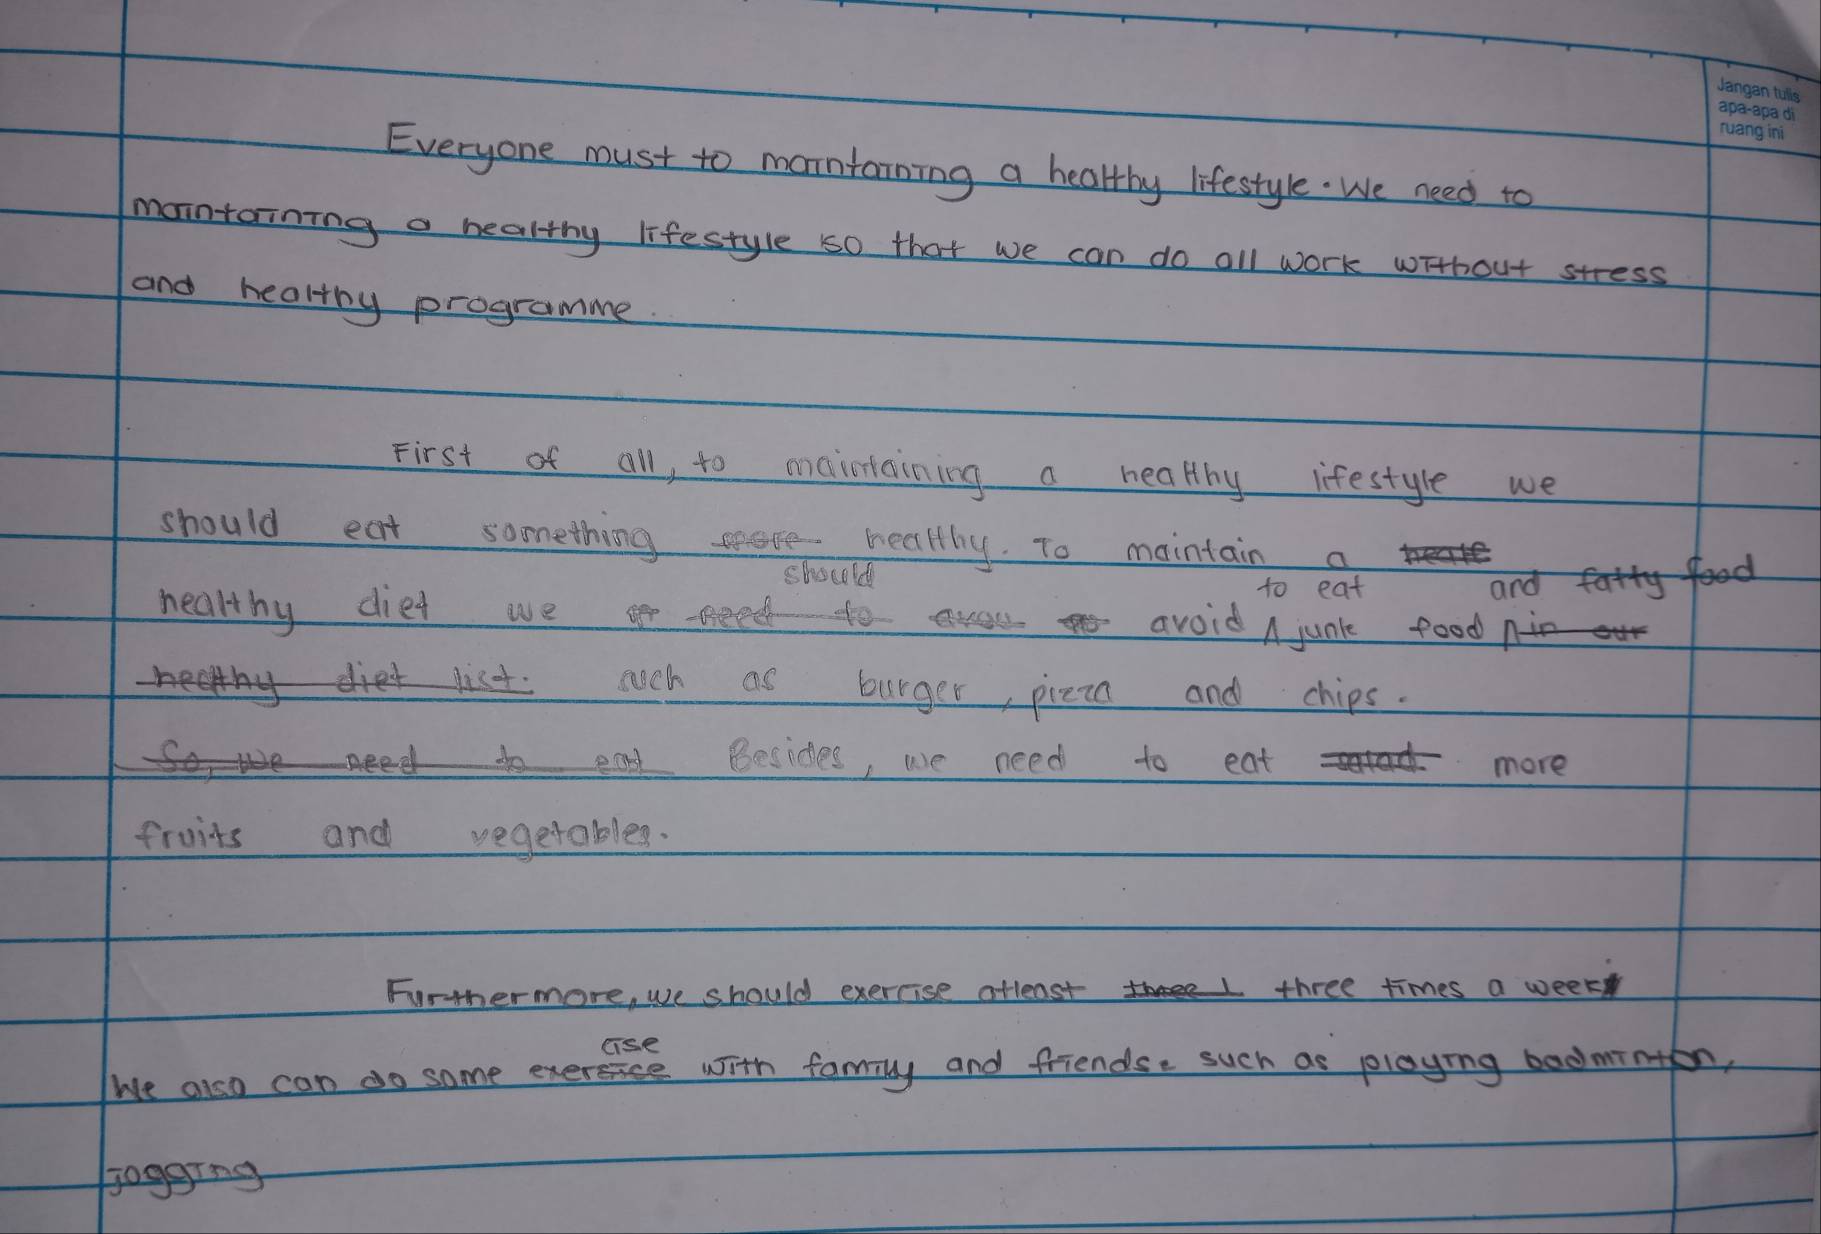 Jangan tulis
apa-apa di
ruang ini
Everyone must to maintaining a healthy lifestyle. We need to
maintaining a healthy lifestyle so that we can do all work without stress
and healthy programme.
First of all, to maintaining a healthy lifestyle we
should eat something more healthy. To maintain a
should to eat and fatty food
healthy diet we need to avoid junk food in our
healthy diet list. such as burger, pizza and chips.
So, we need to eat Besides, we need to eat salad more
fruits and vegetables.
Furthermore, we should exercise atleast three three times a week
cise
We also can do some exersice with family and friends. such as playing badminton,
jogging